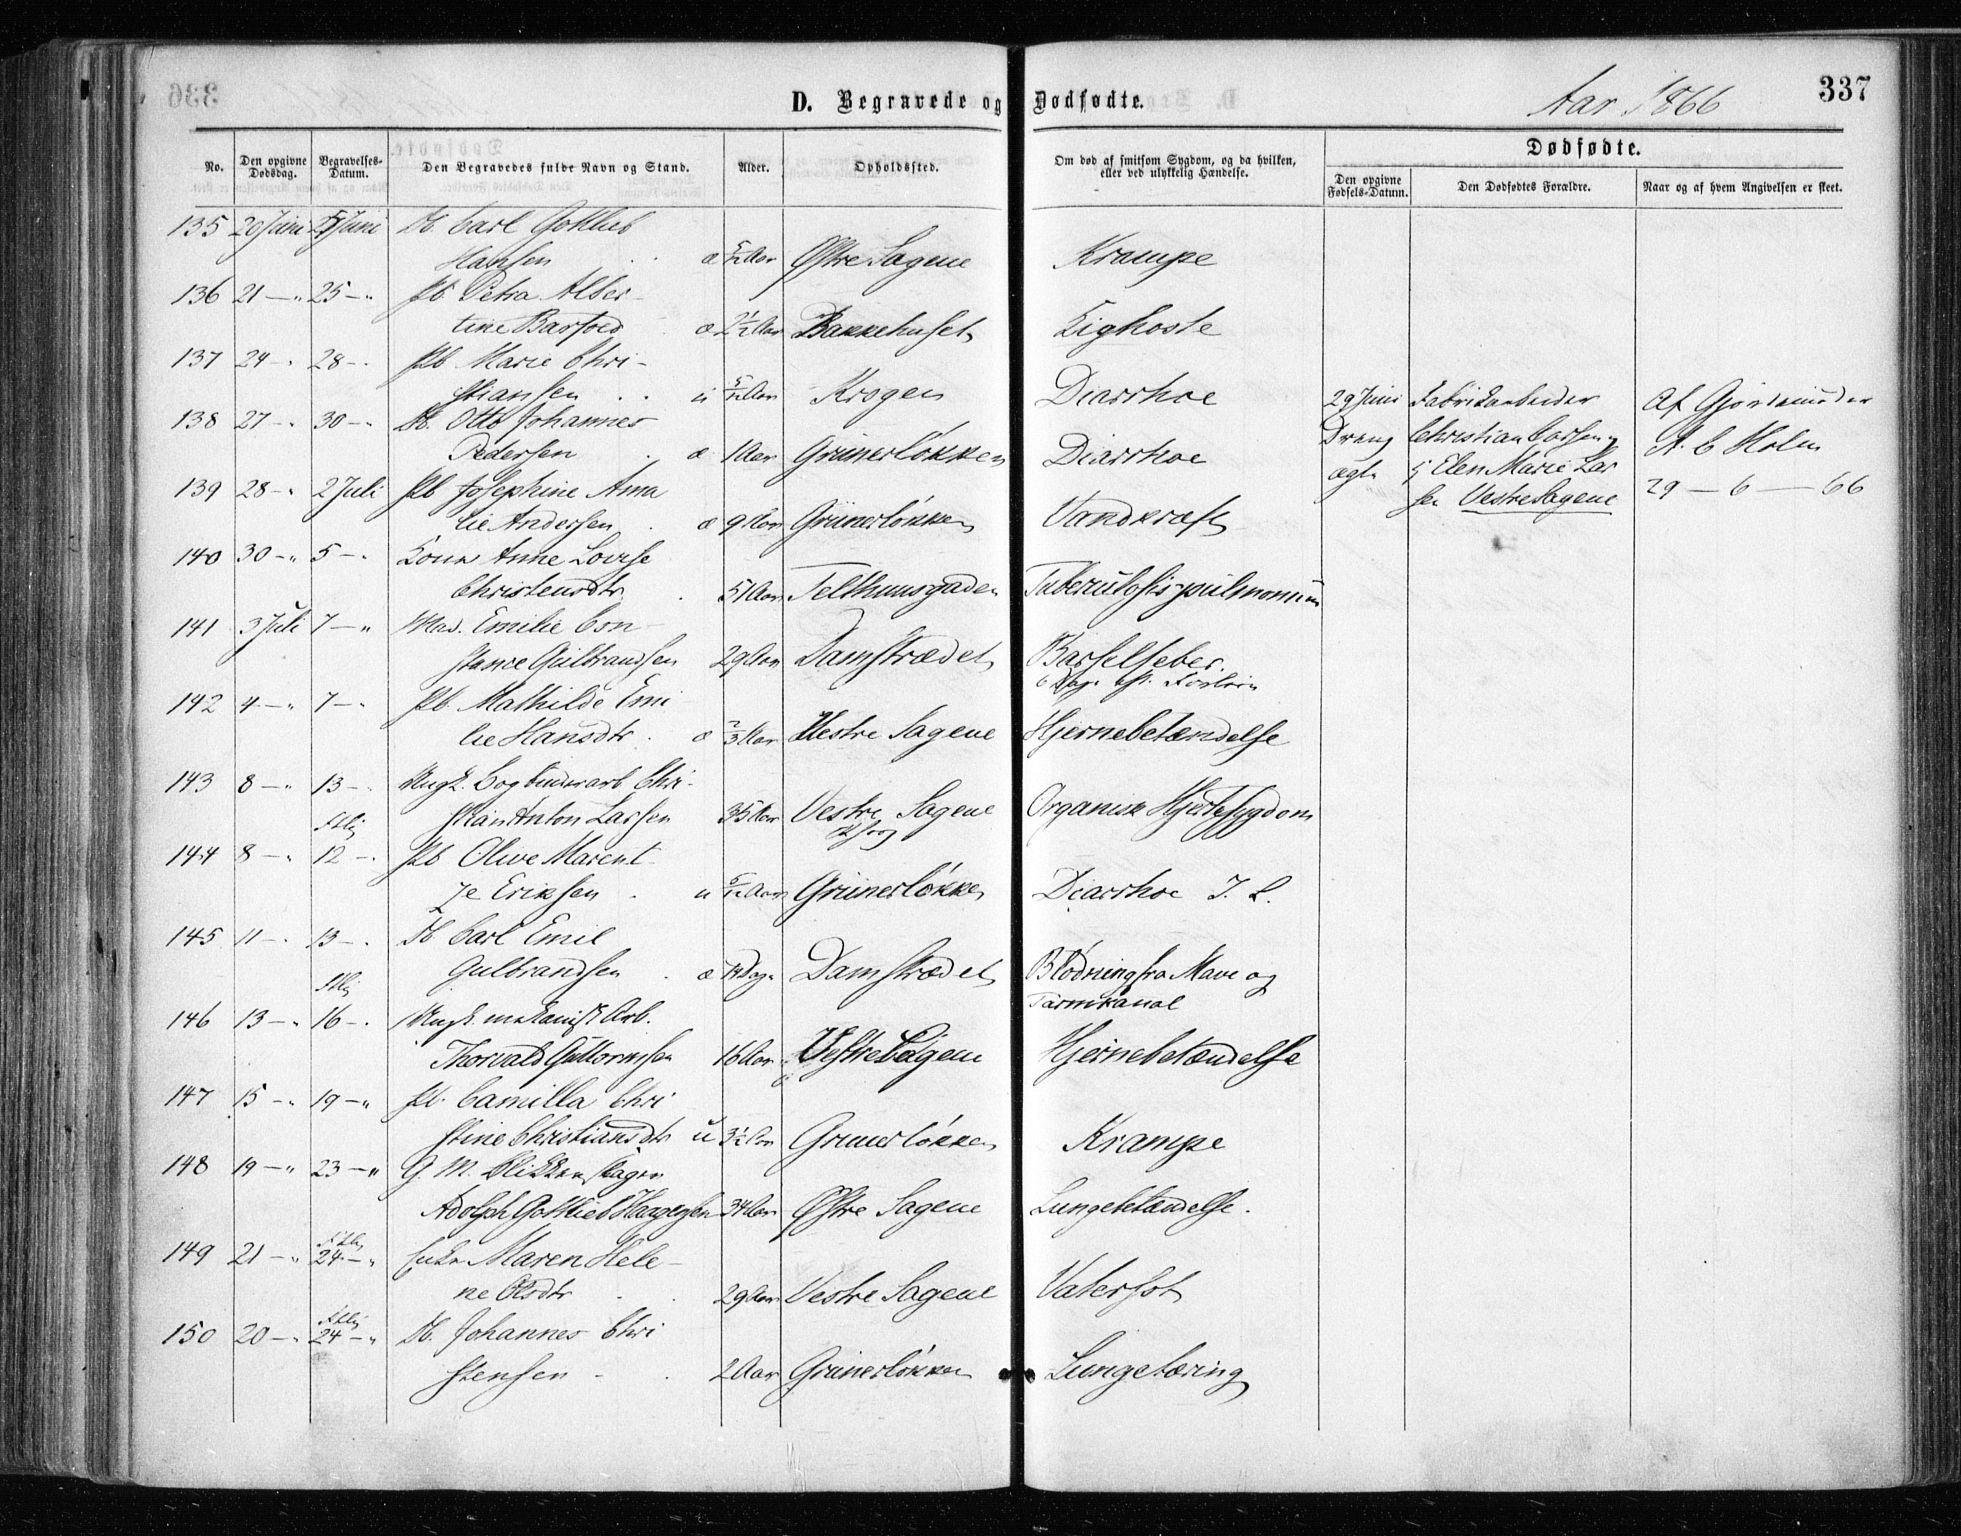 336
D. Begravede og Dødfødte.
Aar 1866
337
No.
Den opgivne Dødsdag.
Begravelses-Datum.
Den Begravedes fulde Navn og Stand.
Alder.
Opholdssted.
Om død af smitsom Sygdom, og da hvilken, eller ved ulykkelig Hændelse.
Dødfødte.
Den opgivne Fødsels-Datum.
Den Dødfødtes Forældre.
Naar og af hvem Angivelsen er skeet.
135 20 Juni Juni Carl Gottlieb
Hansen æ Aar Østre Sagene Krampe
136 21 — " 25 — " Pb. Petra Alber-
tine æ 2 1/2 Aar Bakkehuset Kighoste
137 24 — " 28 — " Pb Marie Chri-
stiansen u 5/12 Aar Krogen Diarrhoe
138 27 — " 30 — " Otto Johannes
Pedersen æ 1 Aar Grünerløkken Diarrhoe
139 28 — " 2 Juli Pb Josephine Ama
lie Andersen æ 9 Aar Grünerløkken Vandkræft
140 30 — " 5 — " Kone Anne Lovise
Christensdtr. 51 Aar Telthuusgaden Tuberculosis pulmonum
141 3 Juli 7 — " Mad. Emilie Con-
stance Gulbrandsen 29 Aar Damstrædet Barselfeber.
6 Dage eft. Forløsn
142 4 — " 7 — " Pb. Mathilde Emi
lie Hansdtr. æ 2/3 Aar Vestre Sagene Hjernebetændelse
143 8 — " 13 — " Ungk. Chri-
stian Anton Larsen 35 Aar Vestre Sagene Organisk Hjertesygdom
144 8 — " 12 — " Pb Olive Marent-
je Eriksen u 5/12 Aar Grünerløkken Diarrhoe I. L.
145 11 — " 13 — " Carl Emil
Gulbrandsen æ 14 Dage Damstrædet Blødning fra Mave og
Tarmkanal
146 13 — " 16 — " Ungk. mekanisk Arb.
Thorvald Guttormsen 16 Aar Vestre Sagene Hjernebetændelse
147 15 — " 19 — " Pb. Camilla Chri
stine Christiansdtr u 3 1/2 Aar Grünerløkken Krampe
148 19 — " 23 — " G. M. Blikkenslager
Adolph Gottlieb 34 Aar Østre Sagene Lungebetændelse.
149 21 — " 24 — " Enke Maren Hele-
ne Olsdtr 29 Aar Vestre Sagene Vatersot
150 20 — " 24 — " Johannes Chri
stensen 2 Aar Grünerløkken Lungetæring
29 Juni
Dreng
ægte
Fabrikarbeider
Christian Larsen og
Elen Marie Lar
sen Vestre Sagene
Af Gjordemoder
A. C Holm
29 — 6 — 66